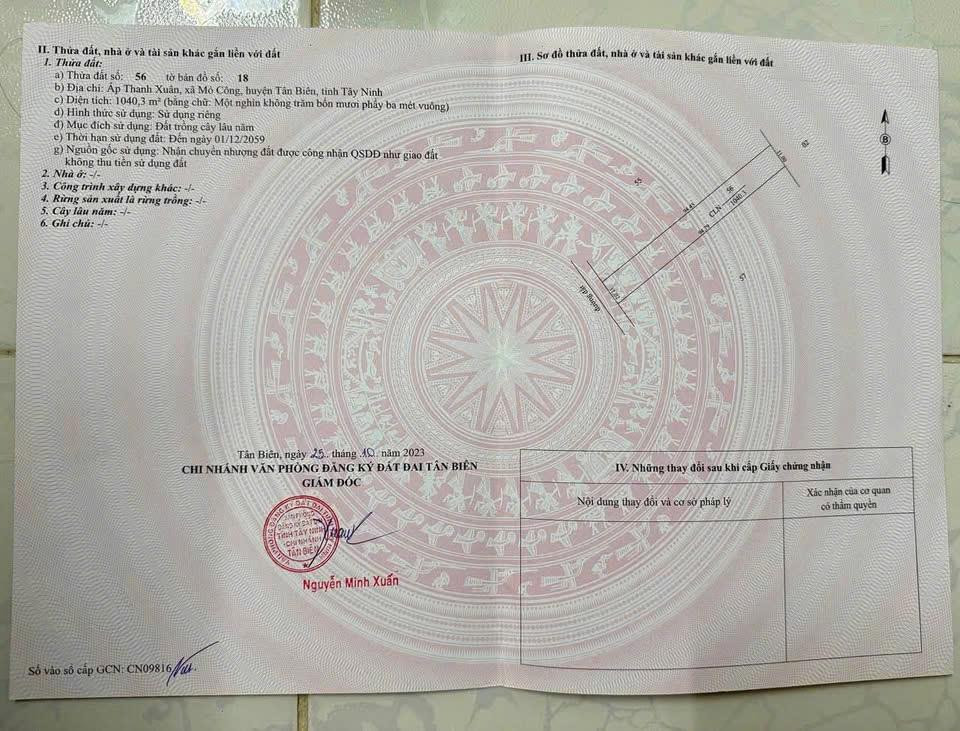 II. Thửa đất, nhà ở và tài sản khác gắn liền với đất
1. Thửa đất:
a) Thửa đất số: 56 tờ bản đồ số: 18
b) Địa chỉ: Ấp Thanh Xuân, xã Mỏ Công, huyện Tân Biên, tỉnh Tây Ninh
c) Diện tích: 1040,3 m² (bằng chữ: Một nghìn không trăm bốn mươi phẩy ba mét vuông)
d) Hình thức sử dụng: Sử dụng riêng
đ) Mục đích sử dụng: Đất trồng cây lâu năm
e) Thời hạn sử dụng đất: Đến ngày 01/12/2059
g) Nguồn gốc sử dụng: Nhận chuyển nhượng đất được công nhận QSDĐ như giao đất
không thu tiền sử dụng đất
2. Nhà ở: -/-
3. Công trình xây dựng khác: -/-
4. Rừng sản xuất là rừng trồng: -/-
5. Cây lâu năm: -/-
6. Ghi chú: -/-
Tân Biên, ngày 25 tháng 10 năm 2023
CHI NHÁNH VĂN PHÒNG ĐĂNG KÝ ĐẤT ĐAI TÂN BIÊN
GIÁM ĐỐC
VĂN PHÒNG
ĐĂNG KÝ ĐẤT ĐAI
TỈNH TÂY NINH
CHI NHÁNH
TÂN BIÊN
Nguyễn Minh Xuấn
Số vào sổ cấp GCN: CN09816
III. Sơ đồ thửa đất, nhà ở và tài sản khác gắn liền với đất
B
82
11.00
55
56
CLN
1040.3
94.45
94.79
57
11.02
đường đất
IV. Những thay đổi sau khi cấp Giấy chứng nhận
Nội dung thay đổi và cơ sở pháp lý
Xác nhận của cơ quan
có thẩm quyền